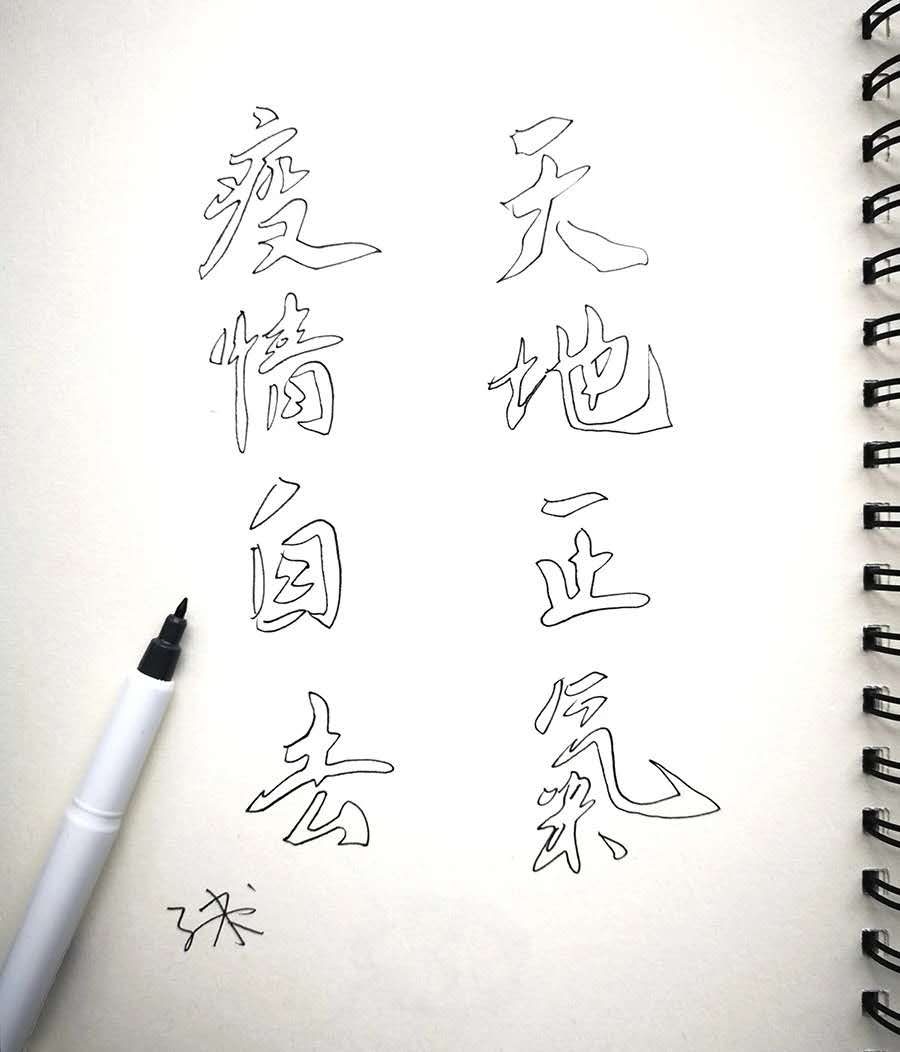 天地正氣
疫情自去